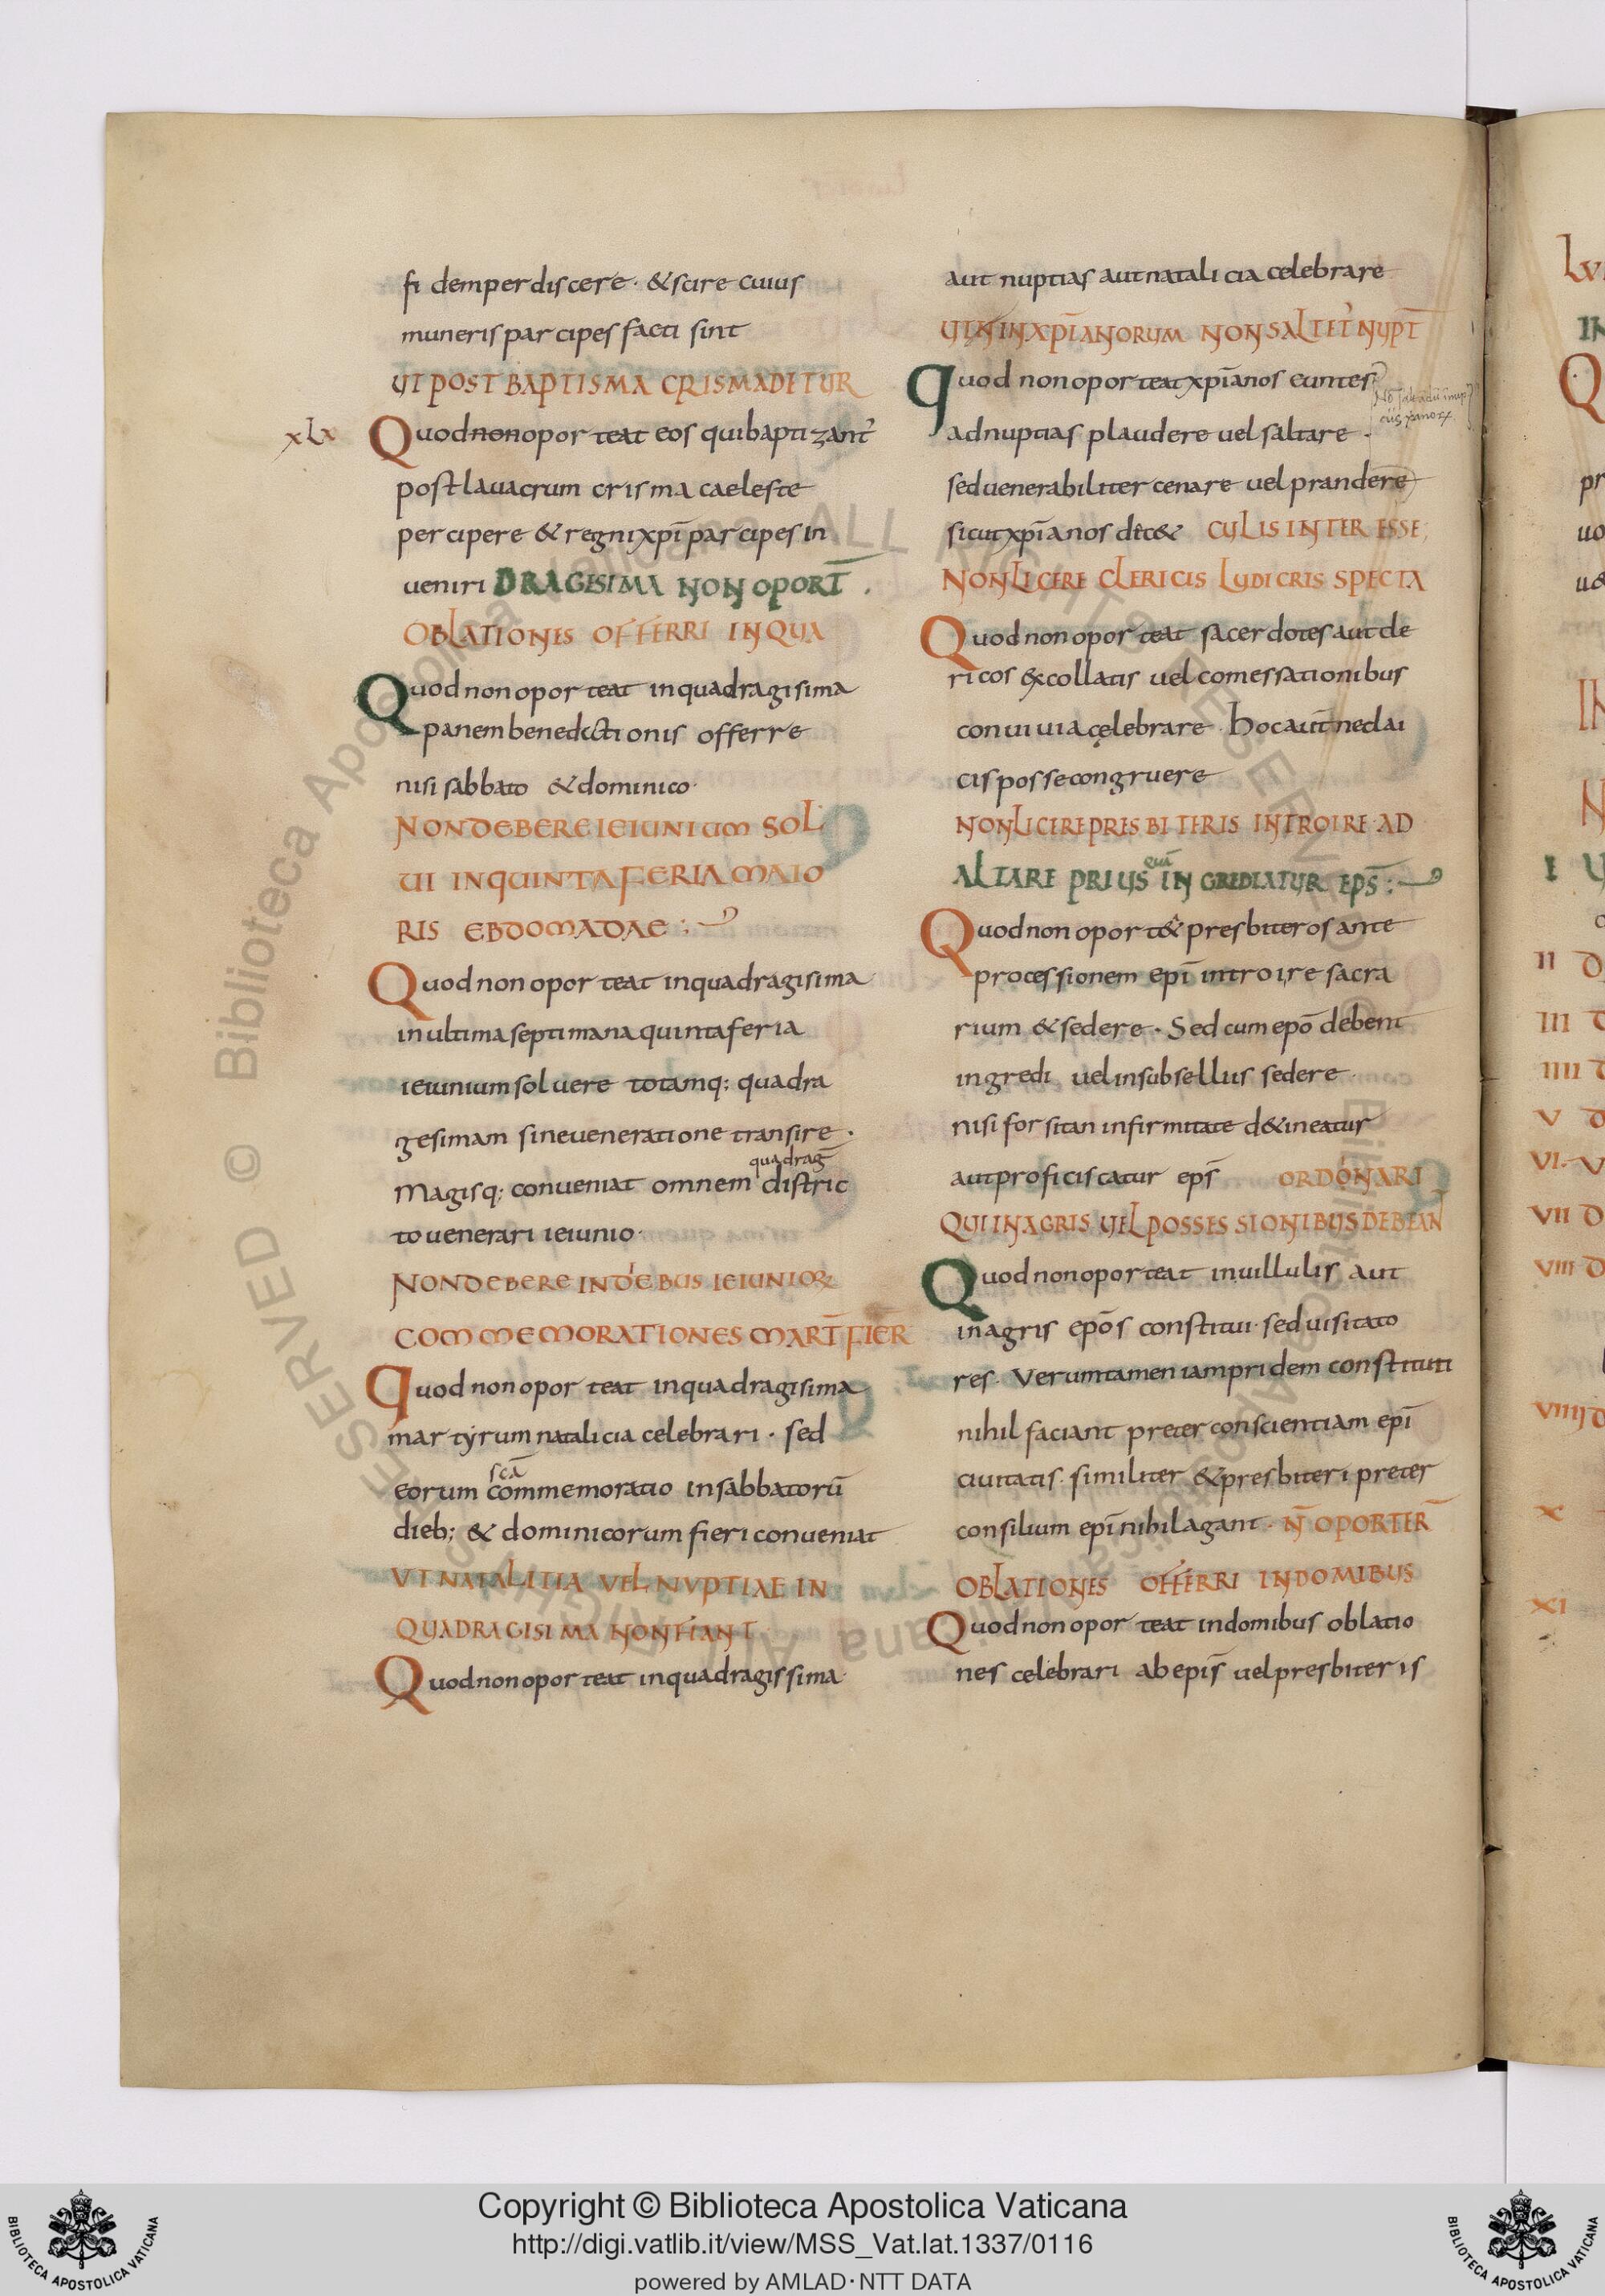 fi dem perdiscere · & scire cuius
muneris par cipes facti sint
UT POST BAPTISMA CRISMADETUR
xLx Quod non oporteat eos qui baptizant'
post lauacrum crisma caeleste
percipere & regni xp̄i par cipes in
ueniri DRAGESIMA NON OPORT̄ .
OBLATIONES OFFERRI IN QUA
Quod non oporteat in quadragisima
panem benedictionis offerre
nisi sabbato & dominico·
NON DEBERE IEIUNIUM SOL
UI IN QUINTA FERIA MAIO
RIS EBDOMADAE :
Quod non oporteat in quadragisima
in ultima septimana quinta feria
ieiunium soluere totamq; quadra
gesimam sine ueneratione transire ·
quadrag̅
Magisq; conueniat omnem distric
to uenerari ieiunio·
NON DEBERE IN DIEBUS IEIUNIOR
COMMEMORATIONES MART̄ FIER̄
Quod non oporteat in quadragisima
martyrum natalicia celebrari · sed
sc̄a
eorum commemoratio in sabbatorū
dieb; & dominicorum fieri conueniat
UT NATALITIA VEL NVPTIAE IN
QUADRAGISIMA NON FIANT
Quod non oporteat in quadragissima
aut nuptias aut natalicia celebrare
UT IN XP̄IANORUM NON SALTET' NUPT̄
Quod non oporteat xp̄ianos euntes
ad nuptias plaudere uel saltare ·
sed uenerabiliter cenare uel prandere
sicut xp̄ianos dec& CULIS INTERESSE,
NON LICERE CLERICIS LUDICRIS SPECTA
Quod non oporteat sacerdotes aut cle
ricos ex collatis uel comessationibus
conuiuia cęlebrare · hoc aut̄ nec lai
cis posse congruere
NON LICERE PRESBITERIS INTROIRE AD
quā
ALTARE PRIUS IN GREDIATUR EPS̄ :
Quod non oport& presbiteros ante
processionem epī introire sacra
rium & sedere · Sed cum epō debent
ingredi uel in subselliis sedere ·
nisi forsitan infirmitate d&ineatur
aut proficiscatur eps̄ ORDONARI
QUI IN AGRIS UEL POSSESSIONIBUS DEBEAN
Quod non oporteat in uillulis aut
in agris epōs constitui · sed uisitato
res · Veruntamen iam pridem constituti
nihil faciant preter conscientiam epī
ciuitatis · similiter & presbiteri preter
consilium epī nihil agant · N̄ OPORTER̄
OBLATIONES OFFERRI IN DOMIBUS
Quod non oporteat in domibus oblatio
nes celebrari ab epīs uel presbiteris
I
II
III
IIII
V
VI
VII
VIII
VIIII
X
XI
Biblioteca Apostolica Vaticana ALL RIGHTS RESERVED ©
Copyright © Biblioteca Apostolica Vaticana
http://digi.vatlib.it/view/MSS_Vat.lat.1337/0116
powered by AMLAD·NTT DATA
BIBLIOTECA APOSTOLICA VATICANA
BIBLIOTECA APOSTOLICA VATICANA